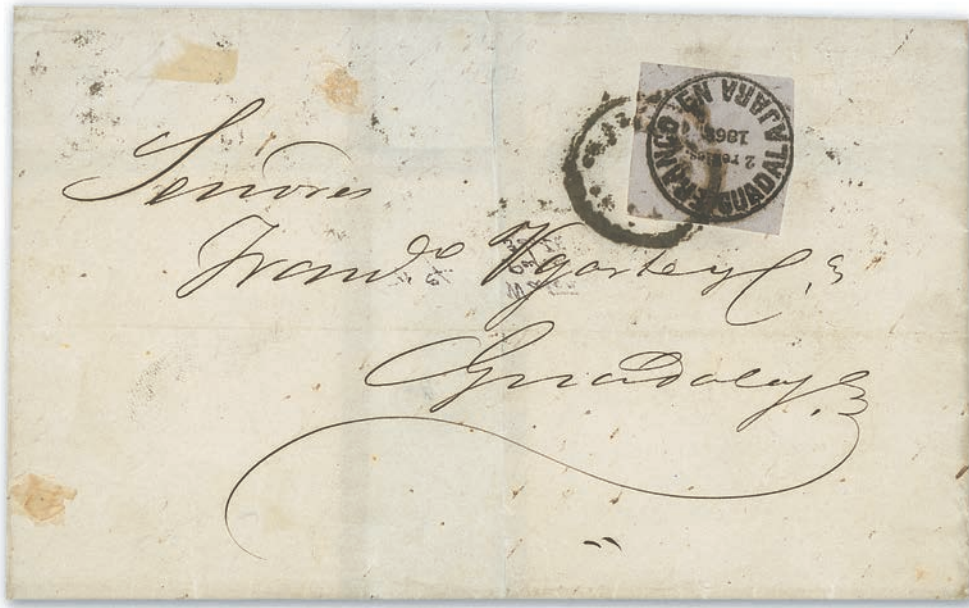 FRANCO EN
GUADALAJARA
2 reales
1868
Señores
Fran.do Ygartey C.a
Guadalaj.a